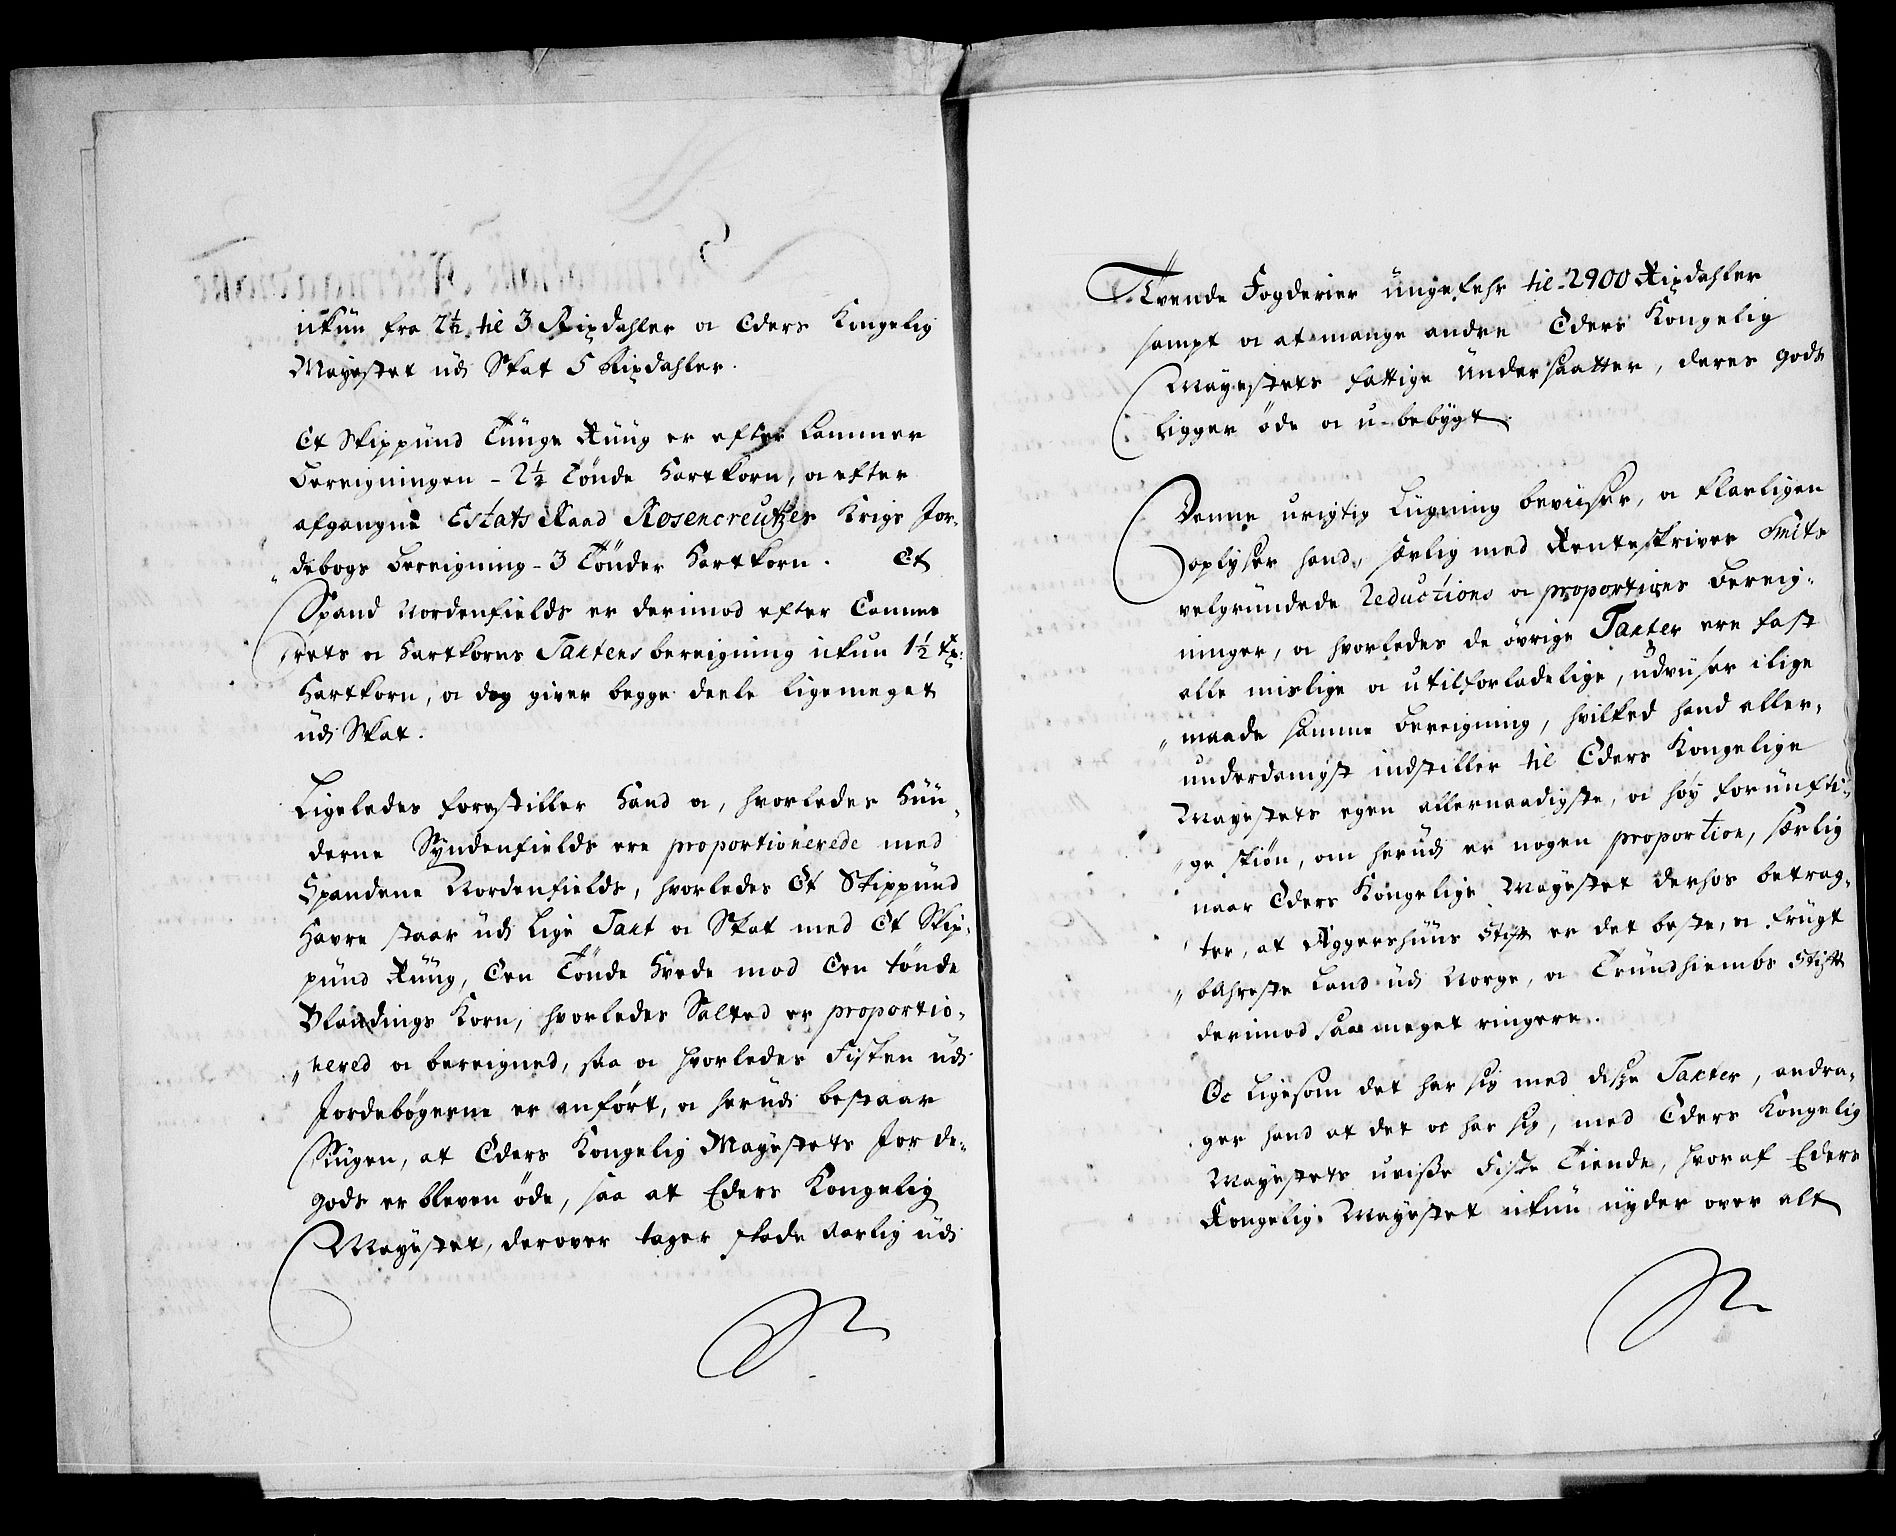 ickun fra 2½ til 3 Rixdahler oc Eders Kongelig
Mayestet udi Skat 5 Rixdahler.
Et Skippund Tunge Ruug er efter Cammer
Bereigningen - 2½ Tönde Hartkorn, oc efter
afgangne Estats Raad Rosencreutzes Krigs Jor-
debogs Bereigning - 3 Tönder Hartkorn. Et
Spand Nordenfields er derimod efter Camme
rets oc Hartkorns Taxtens bereigning ickun 1½ Tr:
Hartkorn, oc dog giver begge deele ligemeget
udi Skat.
Ligeledes forestiller Hand oc, hvorledes Huu-
derne Syndenfields ere proportionerede med
Spandene Nordenfields, hvorledes Et Skippund
Havre staar udi Lige Taxt oc Skat med Et Skip-
pund Ruug, Een Tönde Hvede mod Een tönde
Blandings Korn, hvorledes Salted er proportio-
nered oc bereigned, saa oc hvorledes Fisken udi
Jordebögerne er anfört, oc herudi bestaar
Siugen, at Eders Kongelig Mayestets Jorde-
gods er bleven öde, saa at Eders Kongelig
Mayestet, derover tager skade aarlig udi
Tvende Fogderier ungefehr til 2900 Rixdahler
sampt oc at mange andre Eders Kongelig
Mayestets fattige Undersaatter, deres gods
ligger öde oc u-bebygt.
Denne urigtig Liigning beviiser, oc klarligen
oplyser hand, særlig med Renteskriver Smits
velgrundede Reductions oc proportions bereig-
ninger, oc hvorledes de övrige Taxter ere fast
alle mislige oc utilforladelige, udviiser i lige
maade samme bereigning, hvilked hand aller-
underdanigst indstiller til Eders Kongelige
Mayestets egen allernaadigste, oc höy fornufti-
ge skiön, om herudi er nogen proportion, særlig
naar Eders Kongelige Mayestet derhos betrag-
ter, at Aggershuus Stift er det beste, oc frugt
bahreste Land udi Norge, oc Trundhiembs Stift
derimod saa meget ringere.
Oc Ligesom det har sig med disse Taxter, andra-
ger hand at det oc har sig, med Eders Kongelig
Mayestets uvisse Fiske Tiende, hvoraf Eders
Kongelig Mayestet ickun nyder over alt